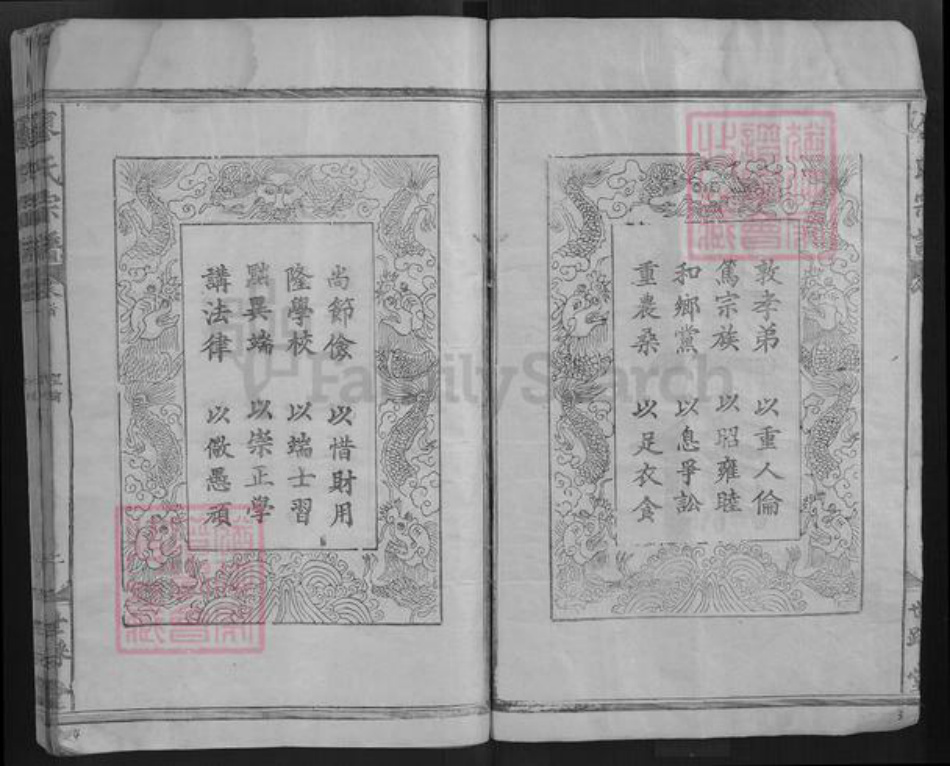 敦孝弟 以重人倫
篤宗族 以昭雍睦
和鄉黨 以息爭訟
重農桑 以足衣食
尚節儉 以惜財用
隆學校 以端士習
黜異端 以崇正學
講法律 以儆愚頑
氏宗譜
世
FamilySearch
3
4